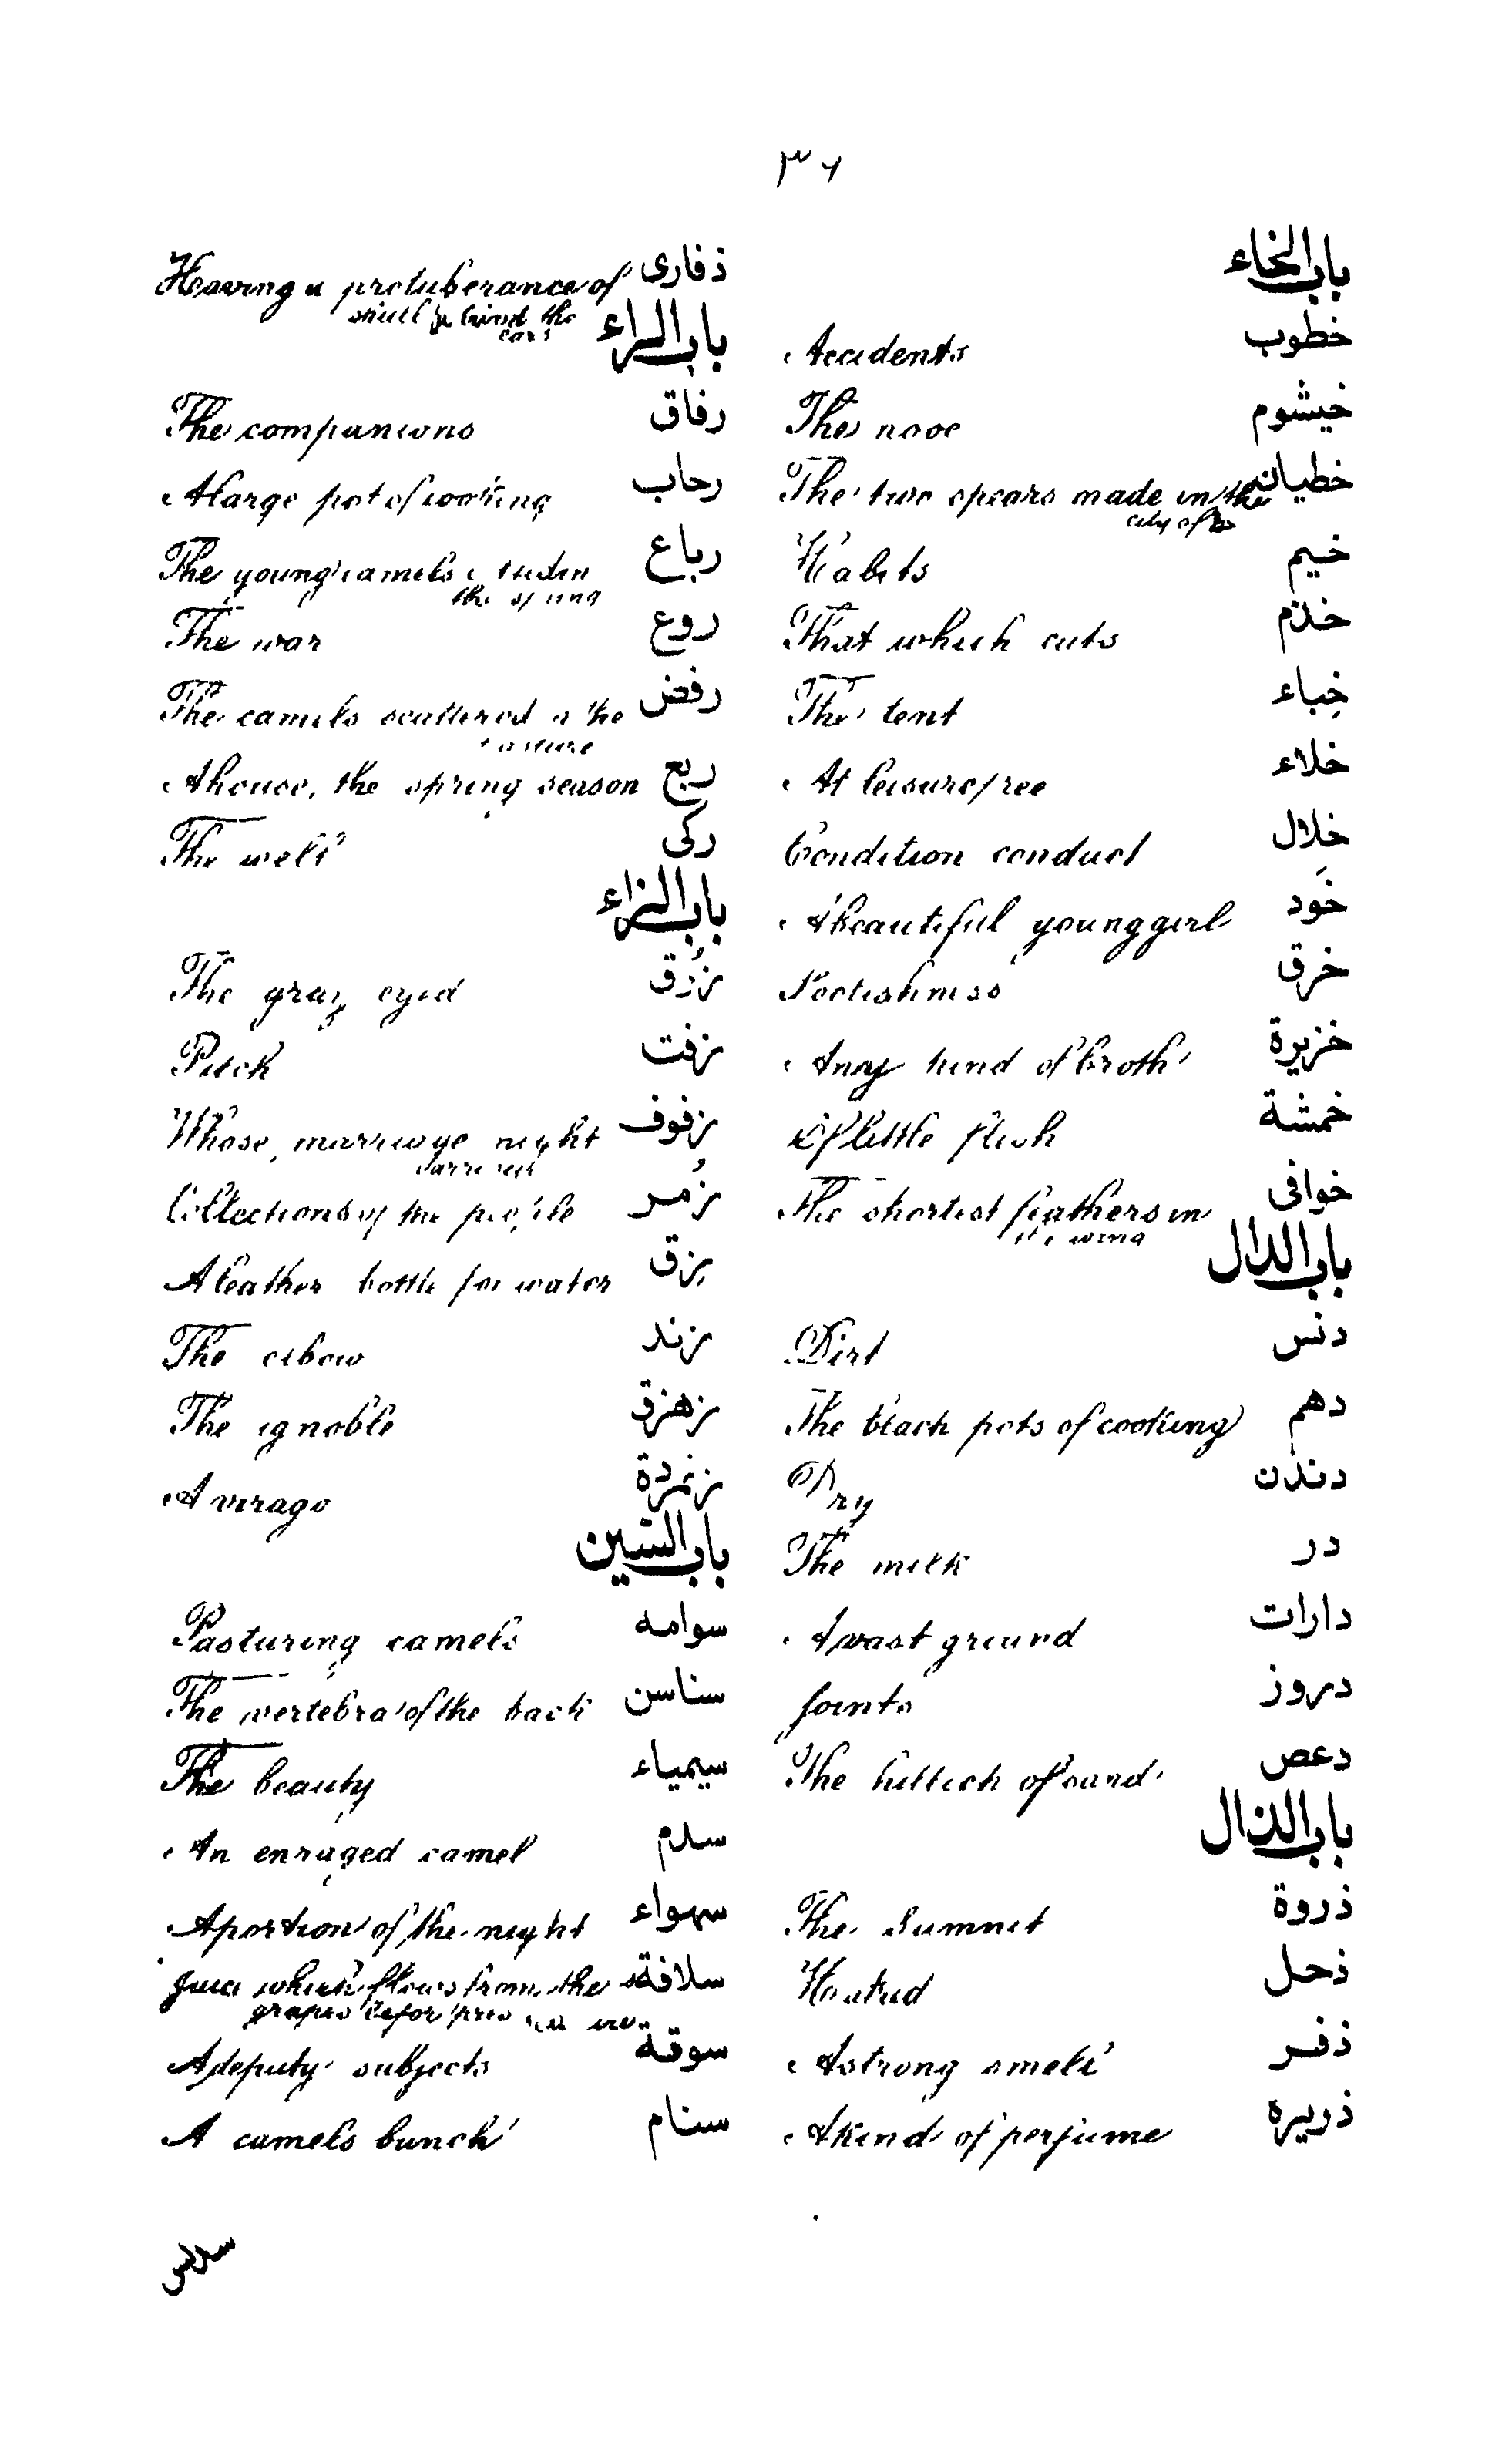 ٣٦
باب الخاء
خطوب Accidents
خيشوم The nose
خطيان The two spears made in the
city of
خيم Habits
خذم That which cuts
خِباء The tent
خلاء At leisure free
خلال Condition conduct
خَود A beautiful young girl
خرق Foolishness
خزيرة Anny kind of broth
خمشة Of little flesh
خوافى The shortest feathers in
the wing
باب الدال
دنس Dirt
دهم The black pots of cooking
دندن Dry
در The milk
دارات A vast ground
دروز Joints
دعص The hillock of sand
باب الذال
ذروة The Summit
ذحل Hatred
ذفر A strong smell
ذريرة A kind of perfume
ذفارى Having a protuberance of
skull behind the
ears
باب الراء
رفاق The companions
رحاب A large pot of cooking
رباع The young camels
the spring
روع The war
رفض The camels scattered in the
pasture
ربع A house, the spring season
ركى The well
باب الزاء
زُرق The gray eyed
زفت Pitch
زفوف Whose marriage night
زُمر Collections of the people
زق A leather bottle for water
زند The elbow
زهزق The ignoble
زنمردة A virago
باب السين
سوامه Pasturing camels
سناسن The vertebra of the back
سيمياء The beauty
سدم An enraged camel
سهواء A portion of the night
سلافة Juice which flows from the
grapes before
سوقة A deputy subjects
سنام A camels bunch